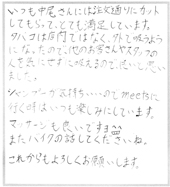 いつも中尾さんには注文通りにカット
してもらって、とても満足しています。
タバコは店内ではなく、外で吸うように
なったので、他のお客さんやスタッフの
人を気にせずに吸えるので良いと思い
ました。
シャンプーが気持ちいいので meetsに
行く時はいつも楽しみにしています。
マッサージも良いですね
またバイクの話してくださいね。
これからもよろしくお願いします。